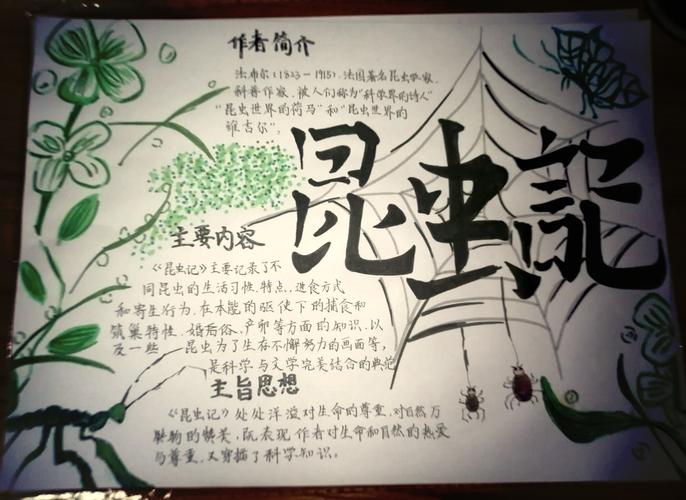 作者简介
法布尔(1823-1915).法国著名昆虫学家.
科普作家.被人们称为"科学界的诗人"
"昆虫世界的荷马"和"昆虫世界的
维吉尔".
昆虫記
主要内容
《昆虫记》主要记录了不
同昆虫的生活习性.特点.进食方式
和寄生行为.在本能的驱使下的捕食和
筑巢特性.婚后俗、产卵等方面的知识.以
及一些 昆虫为了生存不懈努力的画面等,
是科学与文学完美结合的典范
主旨思想
《昆虫记》处处洋溢对生命的尊重,对自然万
物的赞美,既表现作者对生命和自然的热爱
与尊重.又穿插了科学知识。